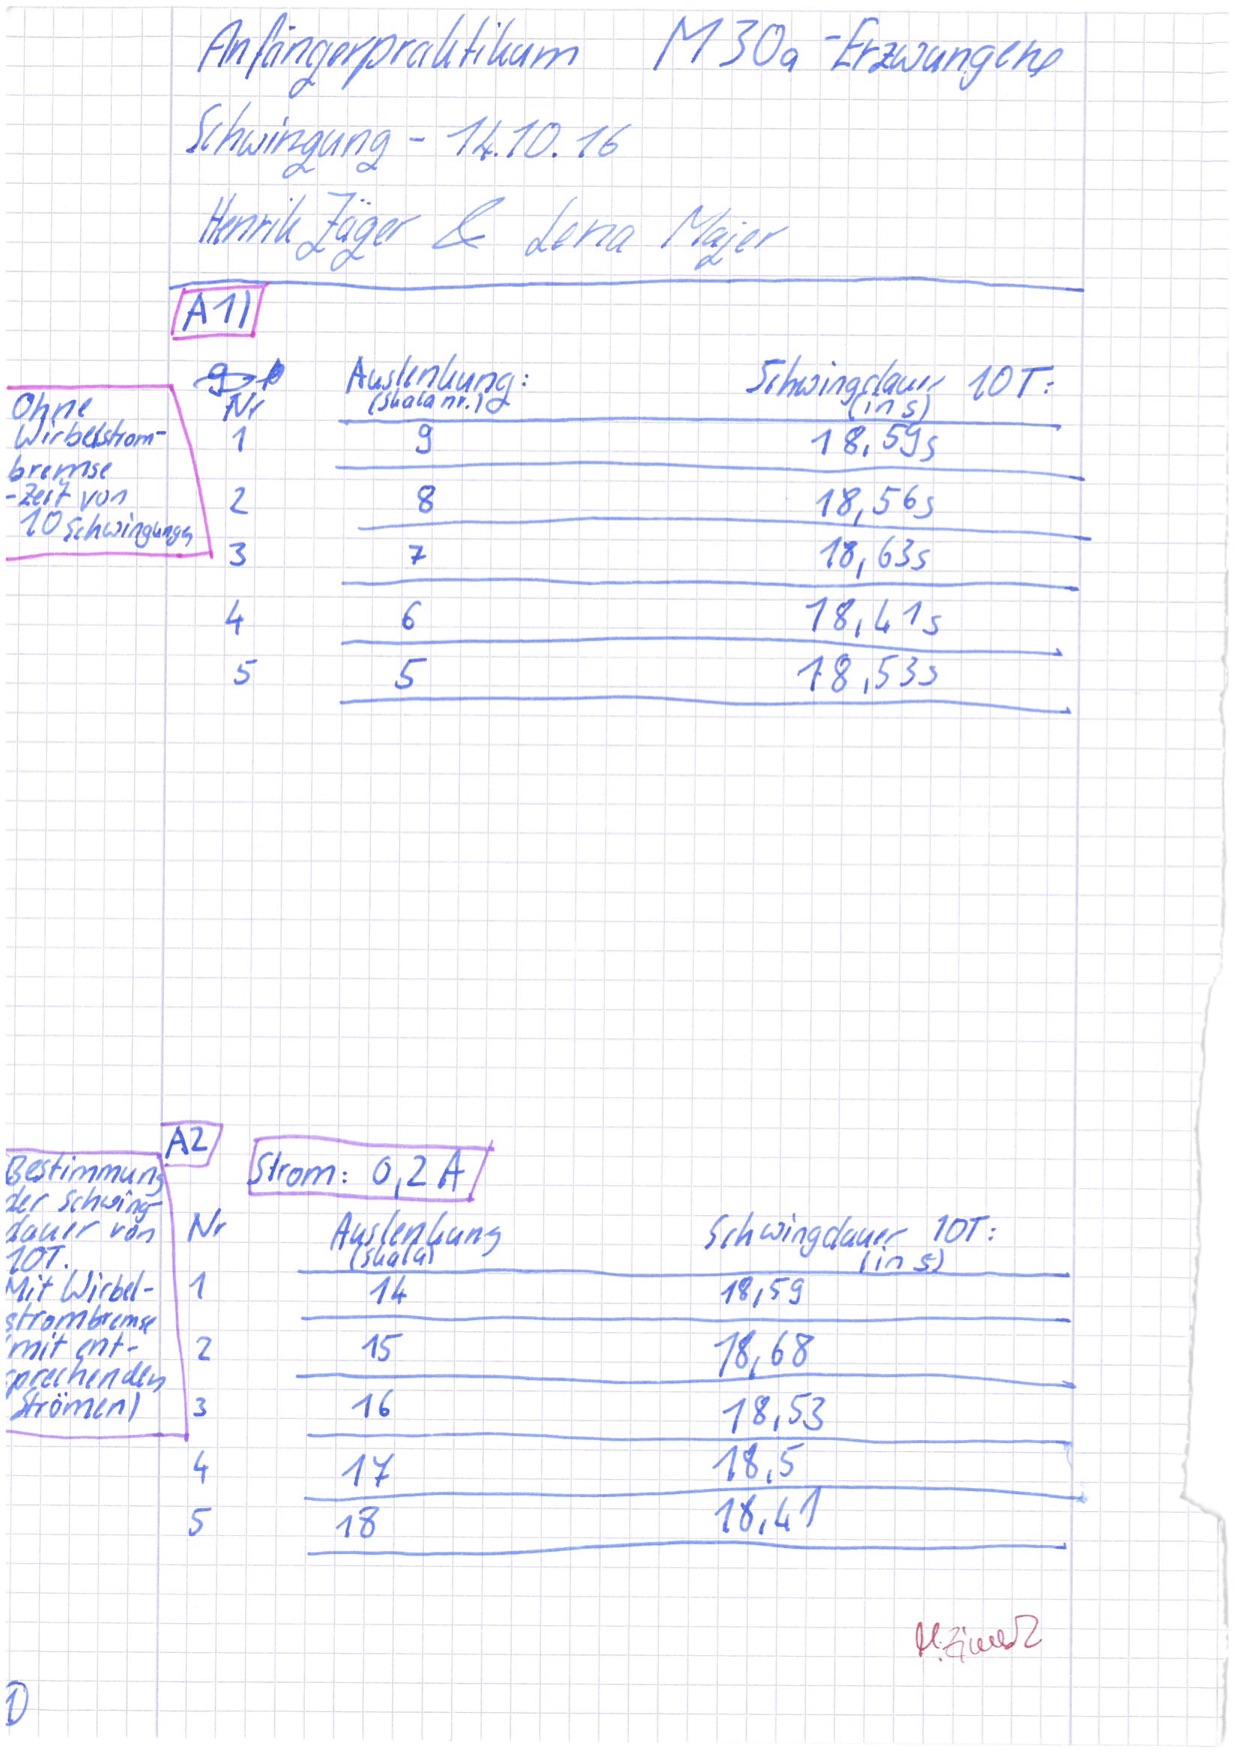 Anfängerpraktikum M30a - Erzwungene
Schwingung - 14.10.16
Henrik Jäger & Lena Majer
A1)
Ohne
Wirbelstrom-
bremse
- Zeit von
10 Schwingungen
Nr Auslenkung: (Skalanr.) Schwingdauer 10T: (in s)
1 9 18,59s
2 8 18,56s
3 7 18,63s
4 6 18,41s
5 5 18,53s
A2 Strom: 0,2 A
Bestimmung
der Schwing-
dauer von
10T.
Mit Wirbel-
strombremse
(mit ent-
sprechenden
Strömen)
Nr Auslenkung (Skala) Schwingdauer 10T: (in s)
1 14 18,59
2 15 18,68
3 16 18,53
4 17 18,5
5 18 18,41